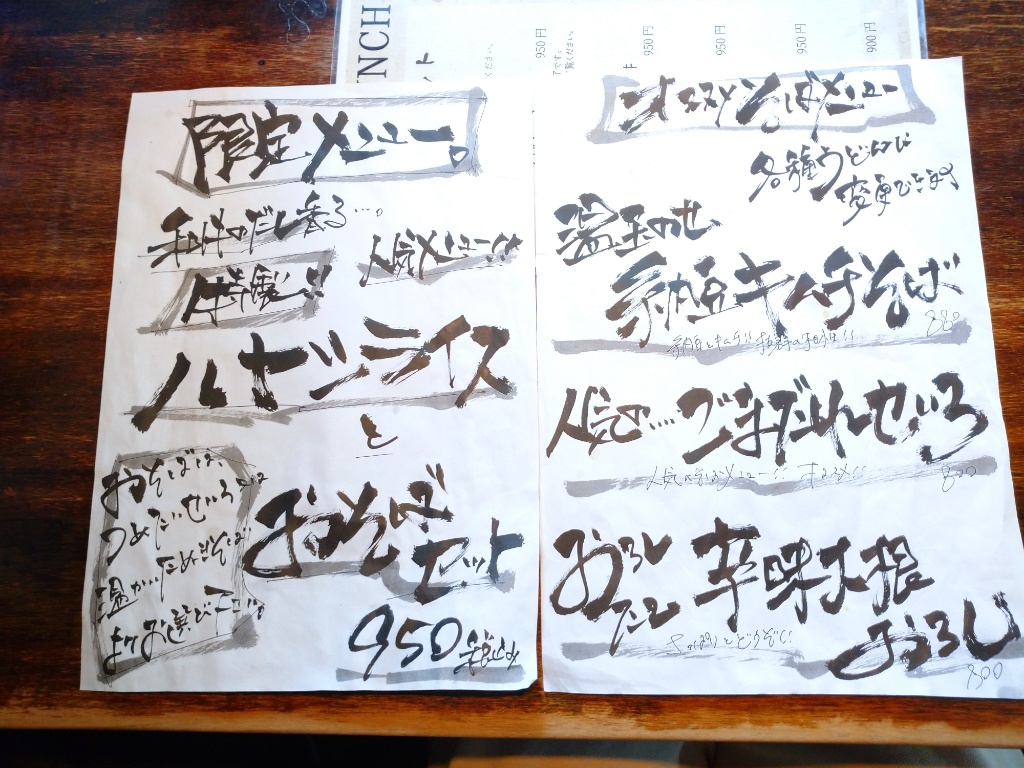 限定メニュー。
和牛のだし香る…。
人気メニュー!!
特製!!
ハヤシライス
と
おそばセット
おそばは、
つめたいせいろ
温かいたぬきそば
よりお選び下さい。
950 税込
オススメそばメニュー
各種うどんに
変更できます
温玉のせ
納豆キムチそば
880
納豆とキムチ!!
人気の…ごまだれせいろ
人気のそばメニュー!! オススメ!!
800
おろしたて
辛味大根
おろし
さっぱりとどうぞ
800
NCH
950円
950円
950円
950円
900円
ください。
ット